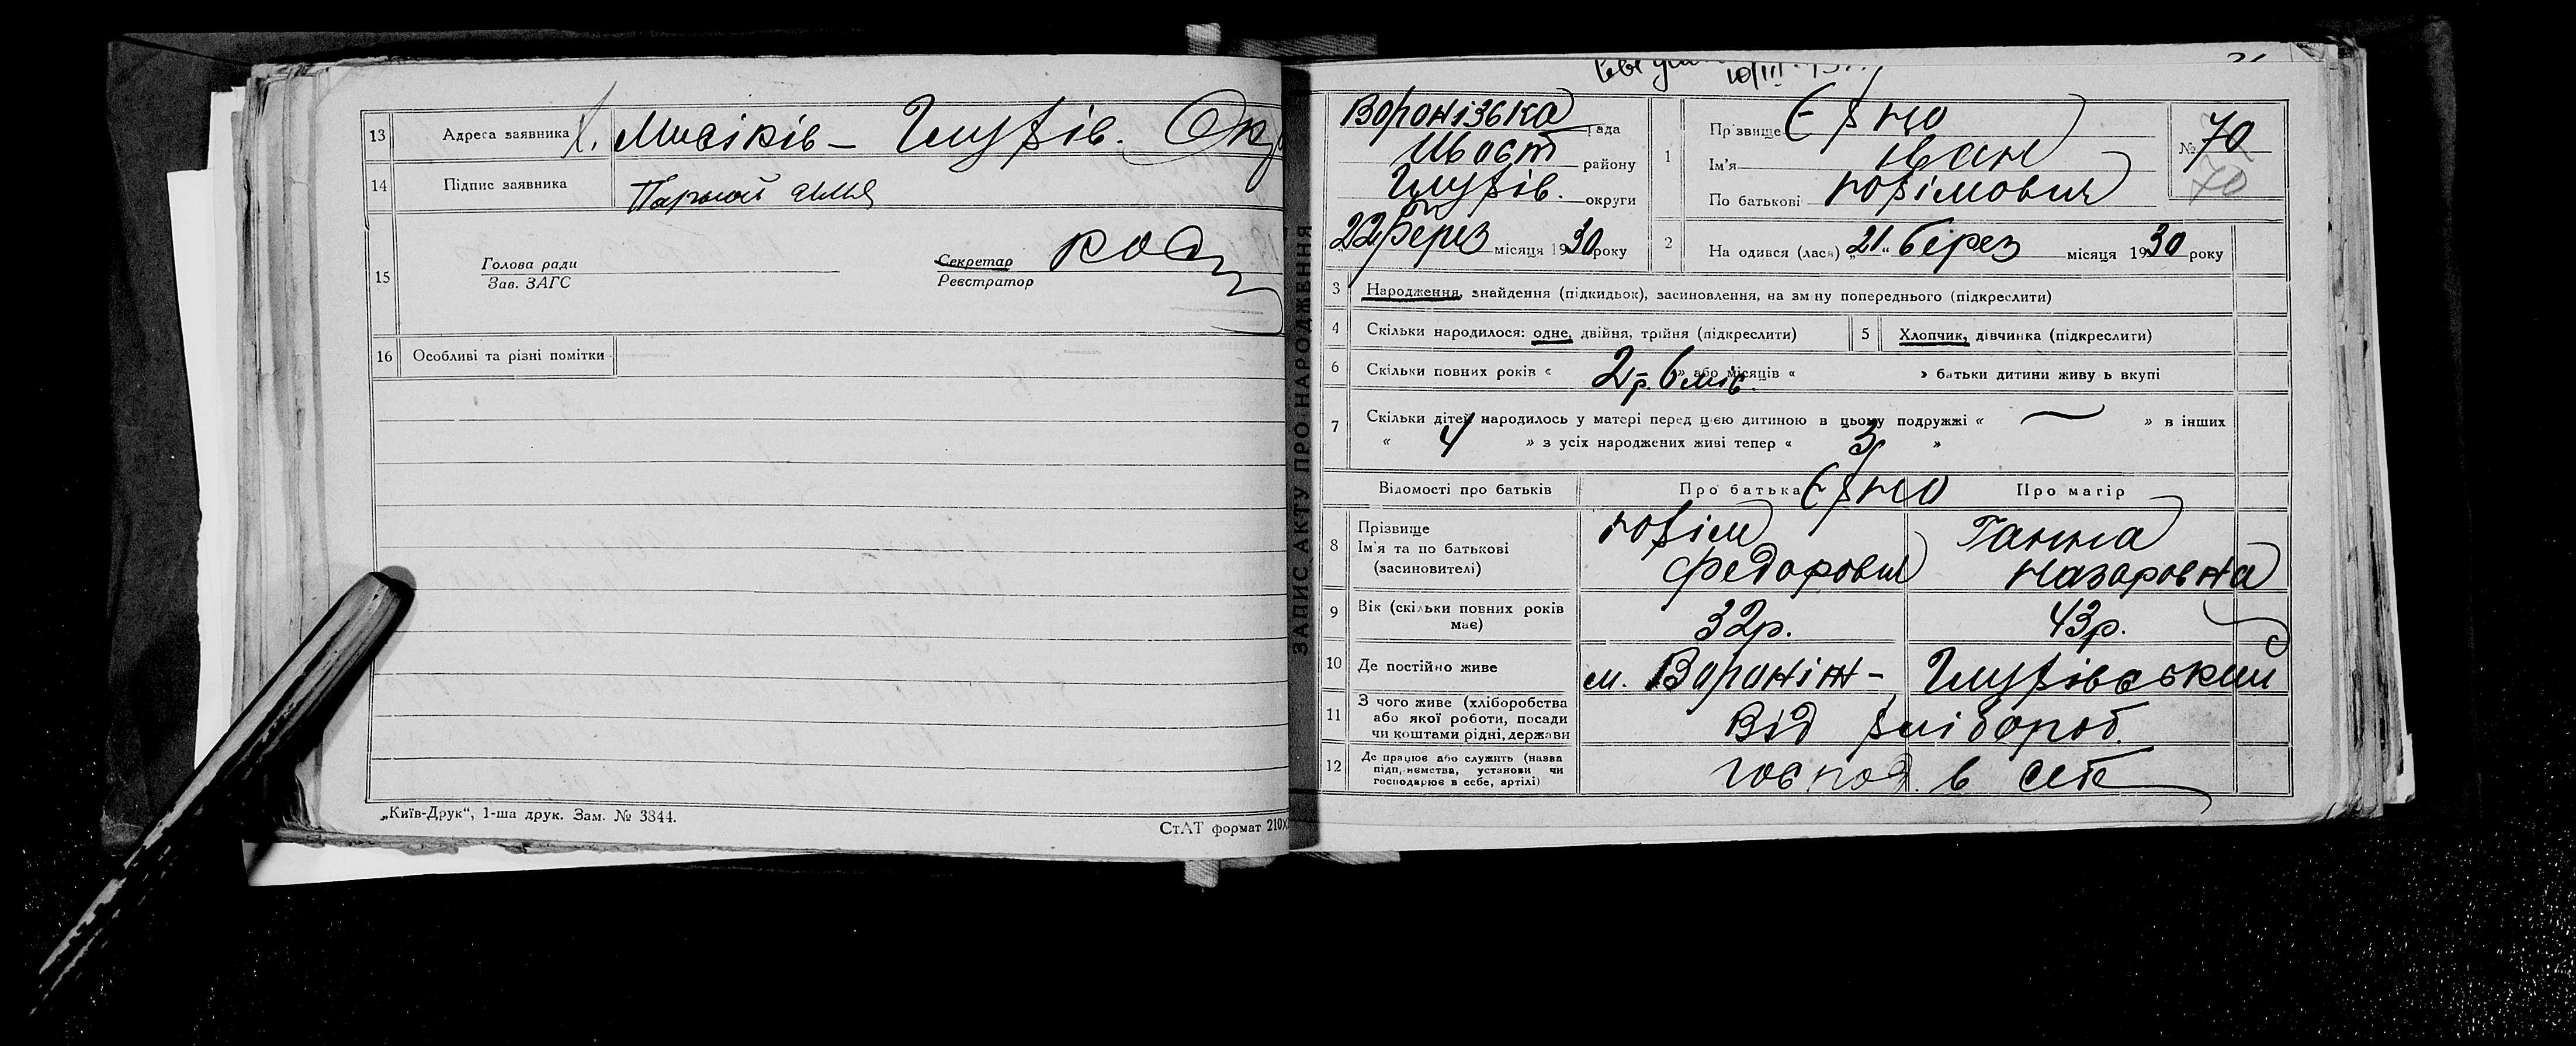 13 Адреса заявника х. Мисіків – Глухів. Окр
14 Підпис заявника
15 Голова ради
Зав. ЗАГС
Секретар
Реєстратор
16 Особливі та різні помітки
„Київ-Друк“, 1-ша друк. Зам. № 3344.
СтАТ формат 210х
ЗАПИС АКТУ ПРО НАРОДЖЕННЯ
10/III
Воронізька рада
району
Глухів. округи
22 Берез місяця 1930 року
1 Прізвище Єхно
Ім’я Іван
По батькові Юхімович
№ 70
70
2 Народився (лася) „21“ берез місяця 1930 року
3 Народження, знайдення (підкидьок), засиновлення, на зміну попереднього (підкреслити)
4 Скільки народилося: одне, двійня, трійня (підкреслити)
5 Хлопчик, дівчинка (підкреслити)
6 Скільки повних років « 2 р. 6 міс. » або місяців « » батьки дитини живуть вкупі
7 Скільки дітей народилось у матері перед цією дитиною в цьому подружжі « — » в інших
« 4 » з усіх народжених живі тепер « 3 »
Відомості про батьків Про батька Про матір
Єхно
8 Прізвище
Ім’я та по батькові
(засиновителі)
Юхім
Федорович
Ганна
Назаровна
9 Вік (скільки повних років має) 32р. 43р.
10 Де постійно живе м. Вороніж – Глухівський
11 З чого живе (хліборобства
або якої роботи, посади
чи коштами рідні, держави
Від хлібороб.
12 Де працює або служить (назва
підприємства, установи чи
господарює в себе, артілі)
господ. в себе